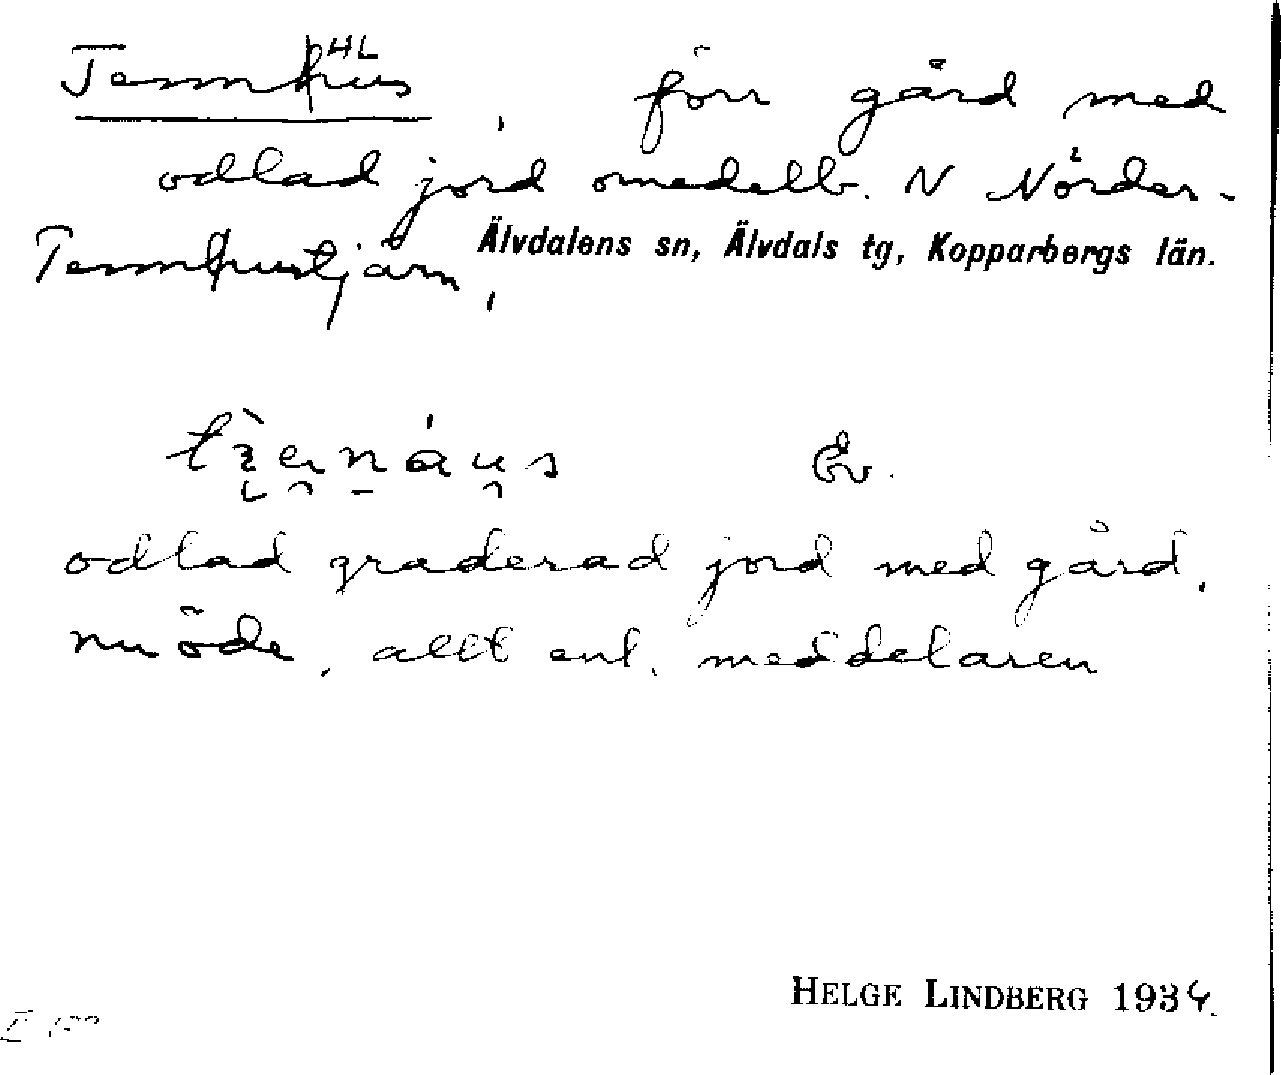 HL
Tennhus, förr gård med
odlad jord omedelb. N Nörder-
Tennhustjärn,
Älvdalens sn, Älvdals tg, Kopparbergs län.
Äv.
odlad graderad jord med gård,
nu öde, allt enl. meddelaren
HELGE LINDBERG 1934.